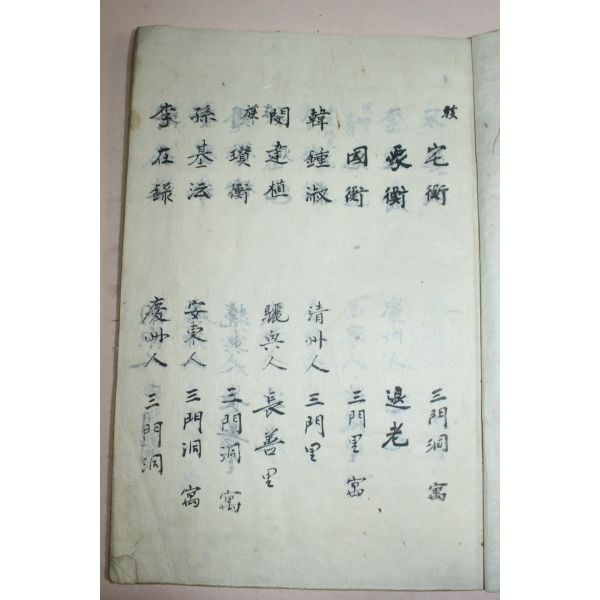 族 宅衡 三門洞 寓
象衡 退老
國衡 三門里 寓
韓鍾淑 清州人 三門里
閔達植 驪興人 長善里
族 瓚衡 三門洞 寓
孫基沄 安東人 三門洞 寓
李在錄 慶州人 三門洞